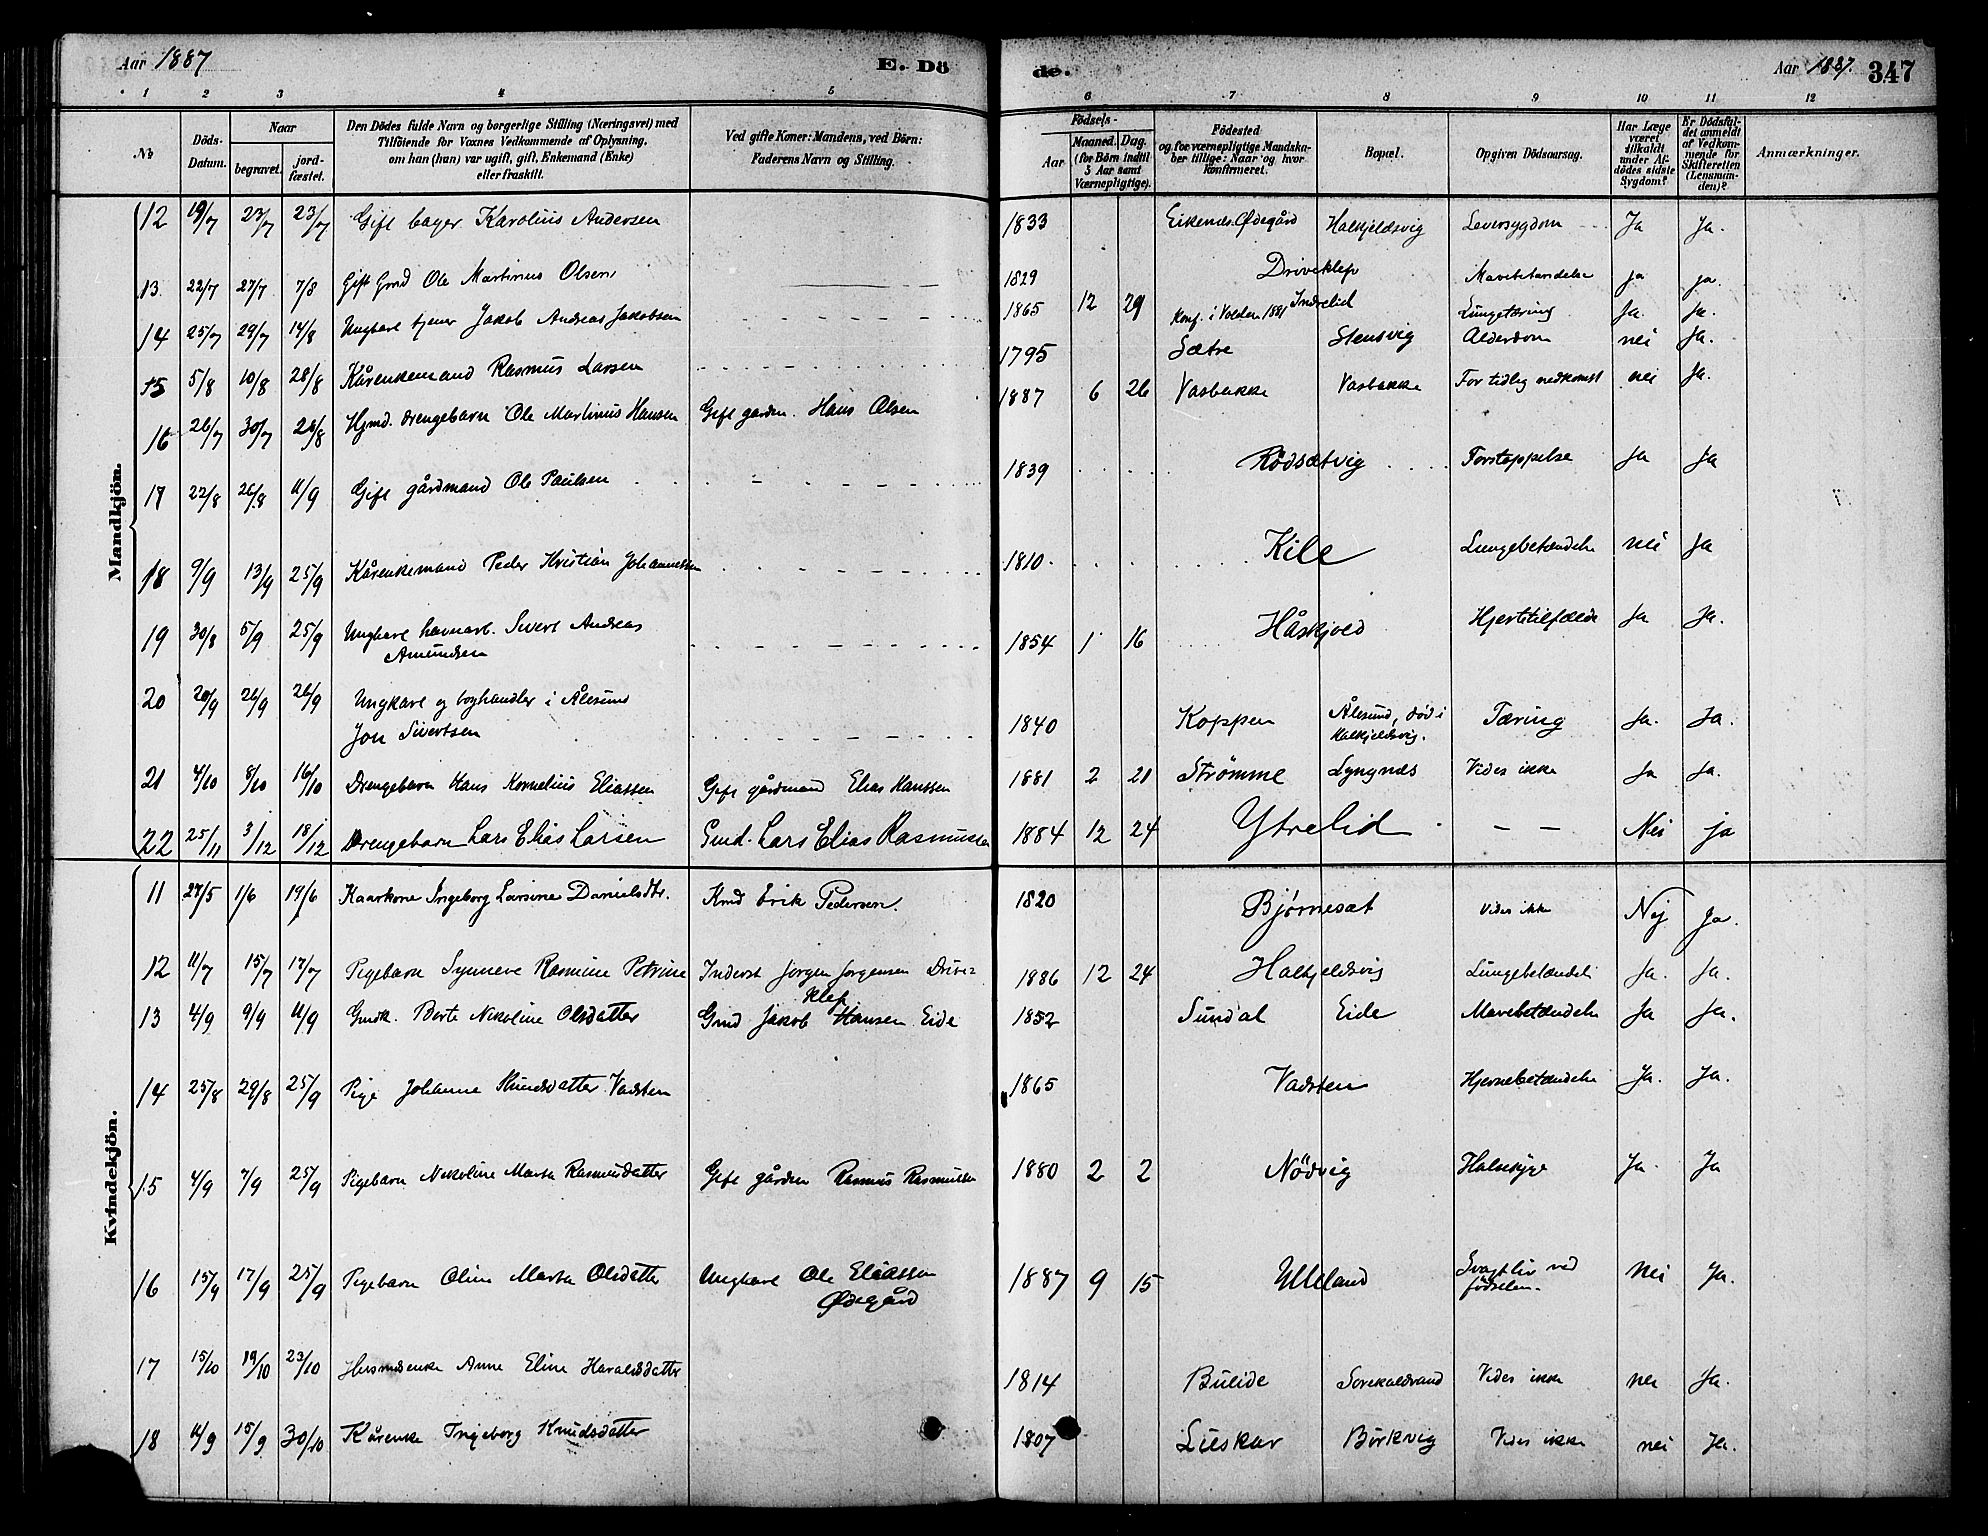 Aar 1887
E. Dö
de.
Aar 1887.
347
1 2 3 4 5 6 7 8 9 10 11 12
No
Döds-Datum.
Naar
begravet.
jord-fæstet.
Den Dödes fulde Navn og borgerlige Stilling (Næringsvei) med
Tilföiende for Voxnes Vedkommende af Oplysning,
om han (hun) var ugift, gift, Enkemand (Enke)
eller fraskilt.
Ved gifte Koner: Mandens, ved Börn:
Faderens Navn og Stilling.
Födsels-
Aar
Maaned. Dag.
(for Börn indtil
5 Aar samt
Værnepligtige).
Födested
og for værnepligtige Mandska-
ber tillige: Naar og hvor
konfirmeret.
Bopæl.
Opgiven Dödsaarsag.
Har Læge
været
tilkaldt
under Af-
dödes sidste
Sygdom?
Er Dödsfal-
det anmeldt
af Vedkom-
mende for
Skifteretten
(Lensman-
den)?
Anmærkninger.
Mandkjön.
12 19/7 23/7 23/7 Gift bager Karolius Andersen 1833 Eikends. Ødegård Halkjeldsvig Leversygdom Ja Ja.
13 22/7 27/7 7/8 Gift Gmd Ole Martinus Olsen 1829 Driveklep Mavebetændelse ja ja.
14 25/7 29/7 14/8 Ungkarl tjener Jakob Andreas Jakobsen 1865 12 29 Konf. i Volden 1881 Indrelid Lungetæring Ja. Ja.
15 5/8 10/8 28/8 Kårenkemand Rasmus Larsen 1795 Sætre Stensvig Alderdom nei Ja.
16 26/7 30/7 28/8 Hjmd. drengebarn Ole Martinus Hansen Gift gårdm. Hans Olsen 1887 6 26 Vasbakke Vasbakke For tidlig nedkomst nei Ja.
17 22/8 26/8 11/9 Gift gårdmand Ole Paulsen 1839 Rödsætvig Forstoppelse Ja Ja
18 9/9 13/9 25/9 Kårenkemand Peder Kristian Johannessen 1810 Kile Lungebetændelse nei Ja
19 30/8 5/9 25/9 Ungkarl havnarb. Sivert Andreas
Amundsen 1854 1 16 Håskjold Hjertetilfælde Ja Ja.
20 20/9 26/9 26/9 Ungkarl og boghandler i Ålesund
Jon Sivertsen 1840 Koppen Ålesund, död i
Halkjeldsvig. Tæring Ja. Ja.
21 4/10 8/10 16/10 Drengebarn Hans Kornelius Eliassen Gift gårdmand Elias Hanssen 1881 2 21 Strömme Lyngnes Vides ikke Ja Ja.
22 25/11 3/12 18/12 Drengebarn Lars Elias Larsen Gmd. Lars Elias Rasmussen 1884 12 24 Ytrelid — — Nei ja
Kvindekjön.
11 27/5 1/6 19/6 Kaarkone Ingeborg Larsine Danielsdtr. Kmd Erik Pedersen. 1820 Bjørnesæt Vides ikke Nej Ja.
12 11/7 15/7 17/7 Pigebarn Synneve Rasmine Petrine Inderst Jørgen Jørgensen Drive-
klep 1886 12 24 Halkjeldsvig Lungebetændelse Ja. Ja.
13 4/9 9/9 11/9 Gmdk. Berte Nikoline Olsdatter Gmd Jakob Hansen Eide 1852 Sundal Eide Mavebetændelse Ja Ja.
14 25/8 29/8 25/9 Pige Johanne Knudsdatter Vadsten 1865 Vadsten Hjernebetændelse Ja. Ja.
15 4/9 7/9 25/9 Pigebarn Nikoline Marta Rasmusdatter Gift gårdm Rasmus Rasmussen 1880 2 2 Nödvig Halssyge Ja. Ja
16 15/9 17/9 25/9 Pigebarn Oline Marta Olsdatter Ungkarl Ole Eliassen
Ødegård 1887 9 15 Ulleland Svagt liv ved
fødselen. Nei Ja.
17 15/10 19/10 23/10 Husmdsenke Anne Eline Haraldsdatter 1814 Bulide Vides ikke nei Ja.
18 11/9 15/9 30/10 Kårenke Ingeborg Knudsdatter 1807 Lieskar Birkvig Vides ikke nei Ja.